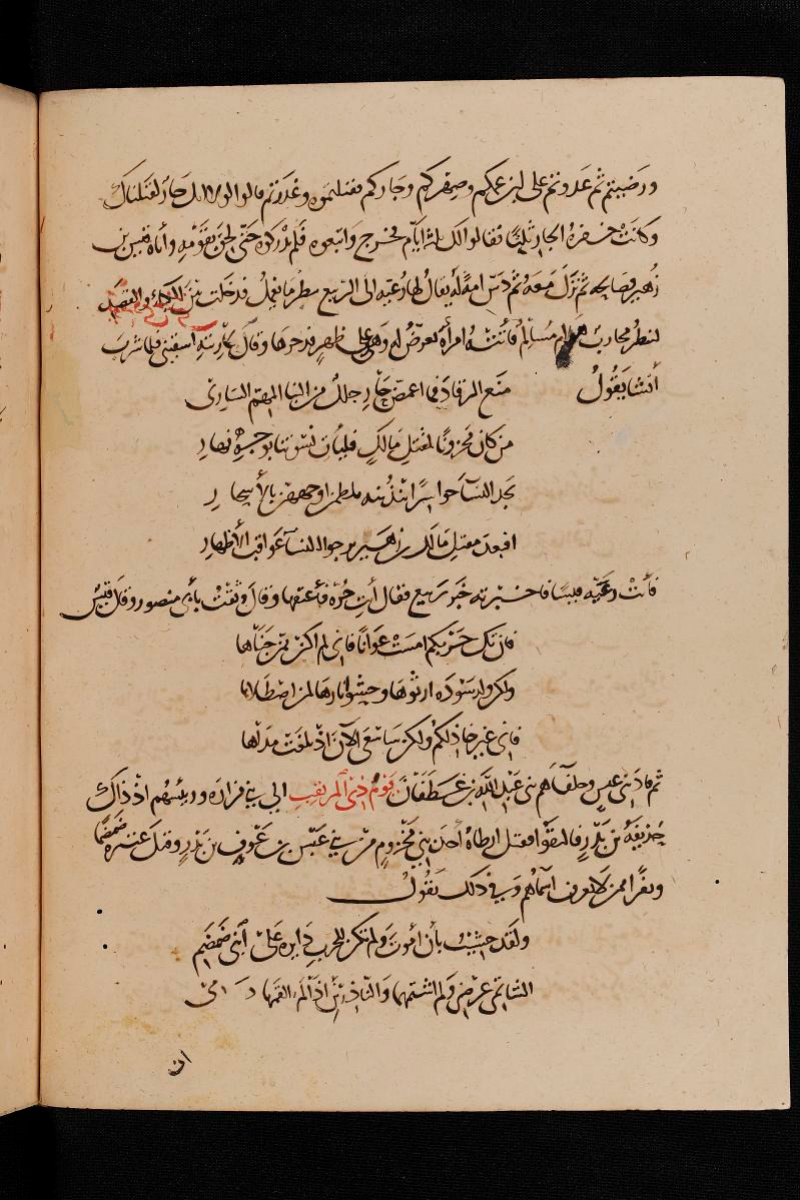 ورضيتم ثم عدوتم على ابن عمكم وصهركم وجاركم فقتلتموه وغدرتم قالوا لولا انك جار لقتلناك
وكانت خفرة الجار ثلثا فقالوا لك ثلثة ايام فخرج واتبعوه فلم يدركوه حتى لحق بقومه وأتاه قيس بن
زهير فصالحه ثم نزل معه ثم دس امة له يقال لها رعيه الى الربيع تنظر ما يعمل فدخلت بين
لتنظر محارب هو ام مسالم فأتته امرأة تعرض له وهي على ظهر فدحرها وقال لجاريته اسقيني فلما شرب
أنشا يقول منع الرقاد فما اغمض حار جلل من النبا المهم السارى
من كان محزونا لمقتل مالك فليأت نسوتنا بوجه نهار
يجد النسآ حواسرا يندبنه يلطمن اوجههن بالأسحار
افبعد مقتل مالك بن زهير يرجو النسآ عواقب الأطهار
فأتت رعيه قيسا فاخبرته خبر ربيع فقال أنت حرة فأعتقها وقال وثقت بأبى منصور وقال قيس
فان تك حربكم امست عوانا فانى لم اكن ممن جناها
ولكن ولد سودة ارثوها وحشوا نارها لمن اصطلاها
فانى غير خاذلكم ولكن ساسعى الآن اذ بلغت مداها
ثم قاد بنى عبس وحلفآهم بنى عبد الله بن غطفان يوم ذى المريقب الى بنى فزارة ورئيسهم اذ ذاك
حذيفة بن بدر فالتقوا فقتل ارطاه أحد بنى مخزوم من بنى عبس بن عوف بن بدر وقتل عنتره ضمضما
ونفرا ممن لا يعرف اسمآهم وفى ذلك يقول
ولقد خشيت بأن أموت ولم تكن للحرب دايره على ابنى ضمضم
الشاتمى عرضى ولم اشتمهما والناذرين اذا لم القهما دمى
ان